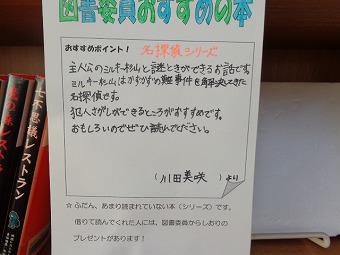 図書委員おすすめの本
おすすめポイント！ 名探偵シリーズ
主人公のミルキー杉山と謎ときができるお話です。
ミルキー杉山はかずかずの難事件を解決してきた
名探偵です。
犯人さがしができるところがおすすめです。
おもしろいのでぜひ読んでください。
（川田美咲）より
☆ふだん、あまり読まれていない本（シリーズ）です。
借りて読んでくれた人には、図書委員からしおりの
プレゼントがあります！
七不思議レストラン